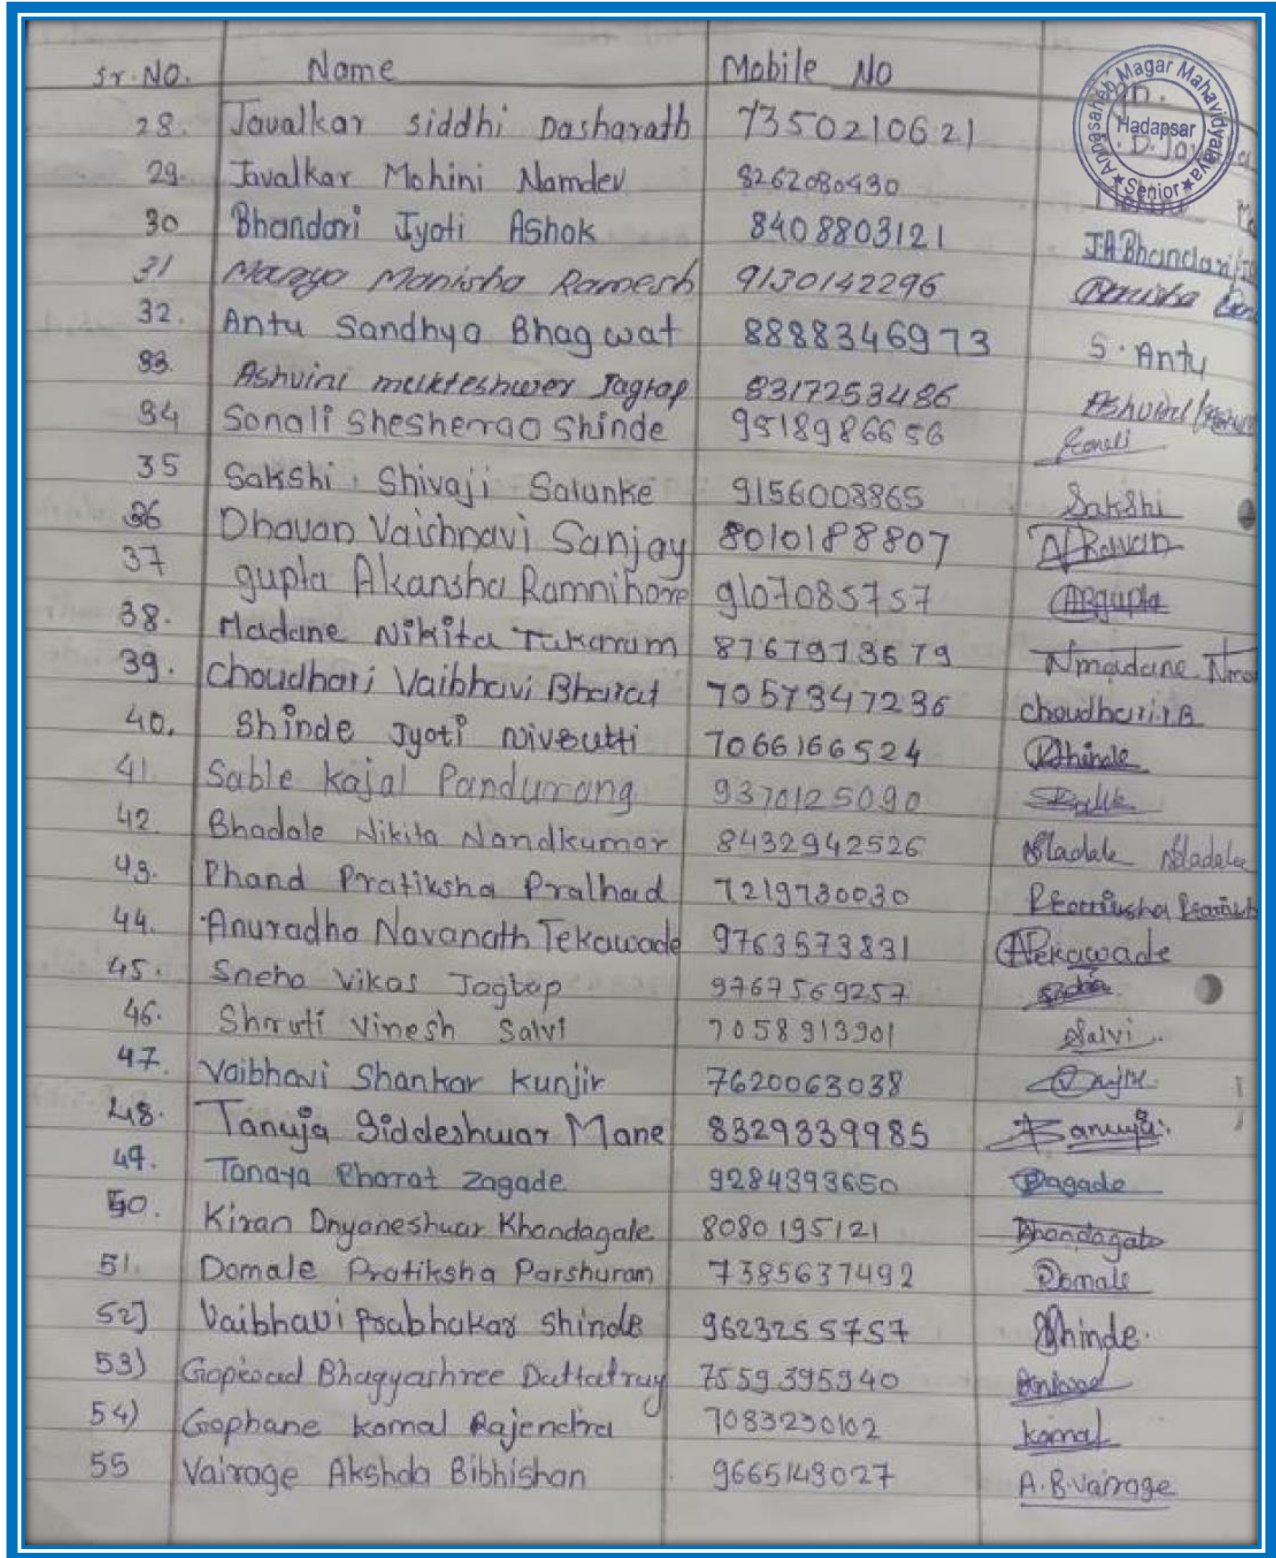 Sr. NO. Name Mobile No Sign.
28. Javalkar Siddhi Dasharath 7350210621
29. Javalkar Mohini Namdev 8262080430
30 Bhandari Jyoti Ashok 8408803121 J.A Bhandari
31 Manisha Ramesh 9130142296
32. Antu Sandhya Bhagwat 8888346973 S. Antu
33. Ashvini mukteshwer Jagtap 8317253486 Ashvini
34 Sonali Shesherao Shinde 9518986656 Sonali
35 Sakshi Shivaji Salunke 9156008865 Sakshi
36 Dhavan Vaishnavi Sanjay 8010188807
37 gupta Akansha Ramnihore 9107085757 Agupta
38. Madane Nikita Tukaram 8767973679 Nmadane
39. Choudhari Vaibhavi Bharat 7057347236 choudhari.V.B
40. Shinde Jyoti Nivrutti 7066166524 Shinde
41. Sable Kajal Pandurang 9370125090
42. Bhadale Nikita Nandkumar 8432942526
43. Phand Pratiksha Pralhad 7219730030
44. Anuradha Navanath Tekawade 9763573831 ATekawade
45. Sneha Vikas Jagtap 9767569257
46. Shruti Vinesh Salvi 7058913901 Salvi
47. Vaibhavi Shankar Kunjir 7620063038
48. Tanuja Siddeshwar Mane 8329339985 Tanuja
49. Tanaya Bharat Zagade 9284393650 Zagade
50. Kiran Dnyaneshwar Khandagale 8080195121
51. Domale Pratiksha Parshuram 7385637492 Domale
52] Vaibhavi Prabhakar Shinde 9623255757 Shinde
53) Gopiwad Bhagyashree Dattatray 7559395940
54) Gophane Komal Rajendra 7083230102 Komal
55 Vairage Akshda Bibhishan 9665149027 A.B.Vairage
Annasaheb Magar Mahavidyalaya
Hadapsar
★ Senior ★